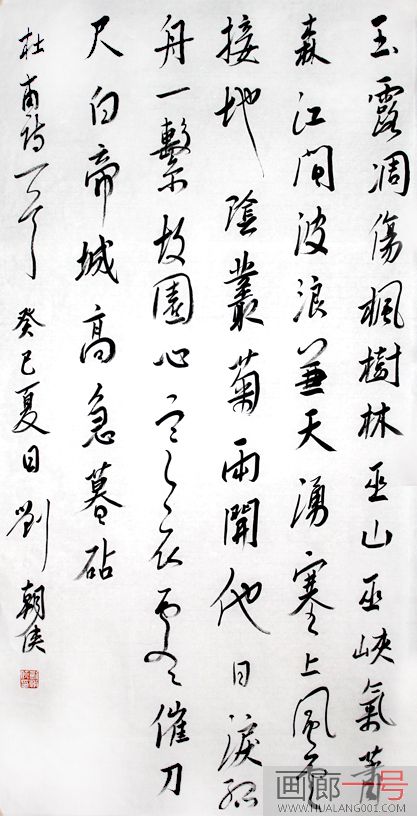 玉露凋傷楓樹林巫山巫峽氣蕭
森江間波浪兼天湧塞上風雲
接地陰叢菊兩開他日淚孤
舟一繫故園心寒衣處々催刀
尺白帝城高急暮砧
杜甫詩一首 癸巳夏日 劉朝俠
画廊一号
WWW.HUALANG001.COM